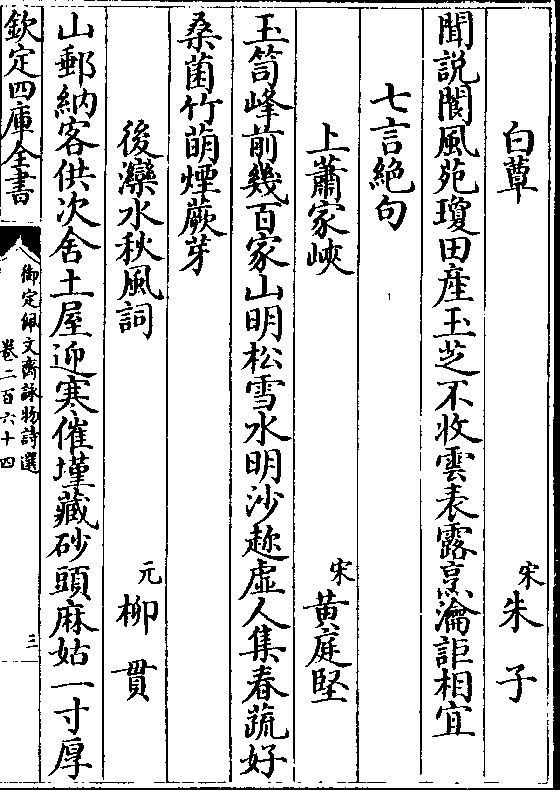 白蕈 宋朱子
聞説閬風苑瓊田産玉芝不收雲表露烹瀹詎相宜
七言絶句
上蕭家峽 宋黄庭堅
玉笥峰前幾百家山明松雪水明沙趂虛人集春蔬好
桑菌竹萌煙蕨芽
後灤水秋風詞 元柳貫
山郵納客供次舍土屋迎寒催墐藏砂頭麻姑一寸厚
欽定四庫全書
御定佩文齋詠物詩選
卷二百六十四
三